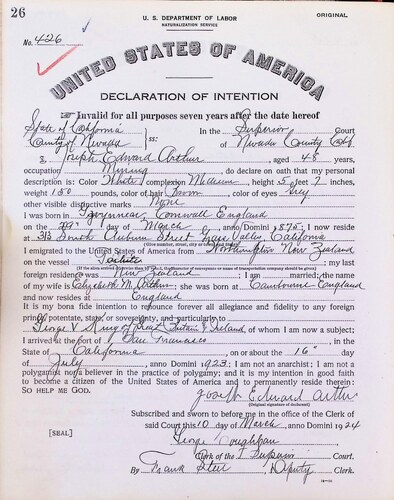 26
U. S. DEPARTMENT OF LABOR
NATURALIZATION SERVICE
ORIGINAL
No. 426
UNITED STATES OF AMERICA
DECLARATION OF INTENTION
Invalid for all purposes seven years after the date hereof
State of California
County of Nevada ss: In the Superior Court
of Nevada County Calif
I, Joseph Edward Arthur, aged 48 years,
occupation Mining, do declare on oath that my personal
description is: Color White, complexion Medium, height 5 feet 7 inches,
weight 150 pounds, color of hair Brown, color of eyes Grey
other visible distinctive marks None
I was born in Cornwall England
on the day of March, anno Domini 1875; I now reside
at 313 South Auburn Street Grass Valley, California
I emigrated to the United States of America from New Zealand
on the vessel; my last
foreign residence was New Zealand; I am married; the name
of my wife is Elizabeth M. Arthur; she was born at Camborne England
and now resides at England
It is my bona fide intention to renounce forever all allegiance and fidelity to any foreign
prince, potentate, state, or sovereignty, and particularly to
George V King of Great Britain & Ireland, of whom I am now a subject;
I arrived at the port of San Francisco, in the
State of California, on or about the 16" day
of July, anno Domini 1923; I am not an anarchist; I am not a
polygamist nor a believer in the practice of polygamy; and it is my intention in good faith
to become a citizen of the United States of America and to permanently reside therein:
SO HELP ME GOD.
Joseph Edward Arthur
(Original signature of declarant)
Subscribed and sworn to before me in the office of the Clerk of
said Court this 10 day of March, anno Domini 1924
[SEAL]
George
Clerk of the Superior Court.
By Frank Steel, Deputy Clerk.